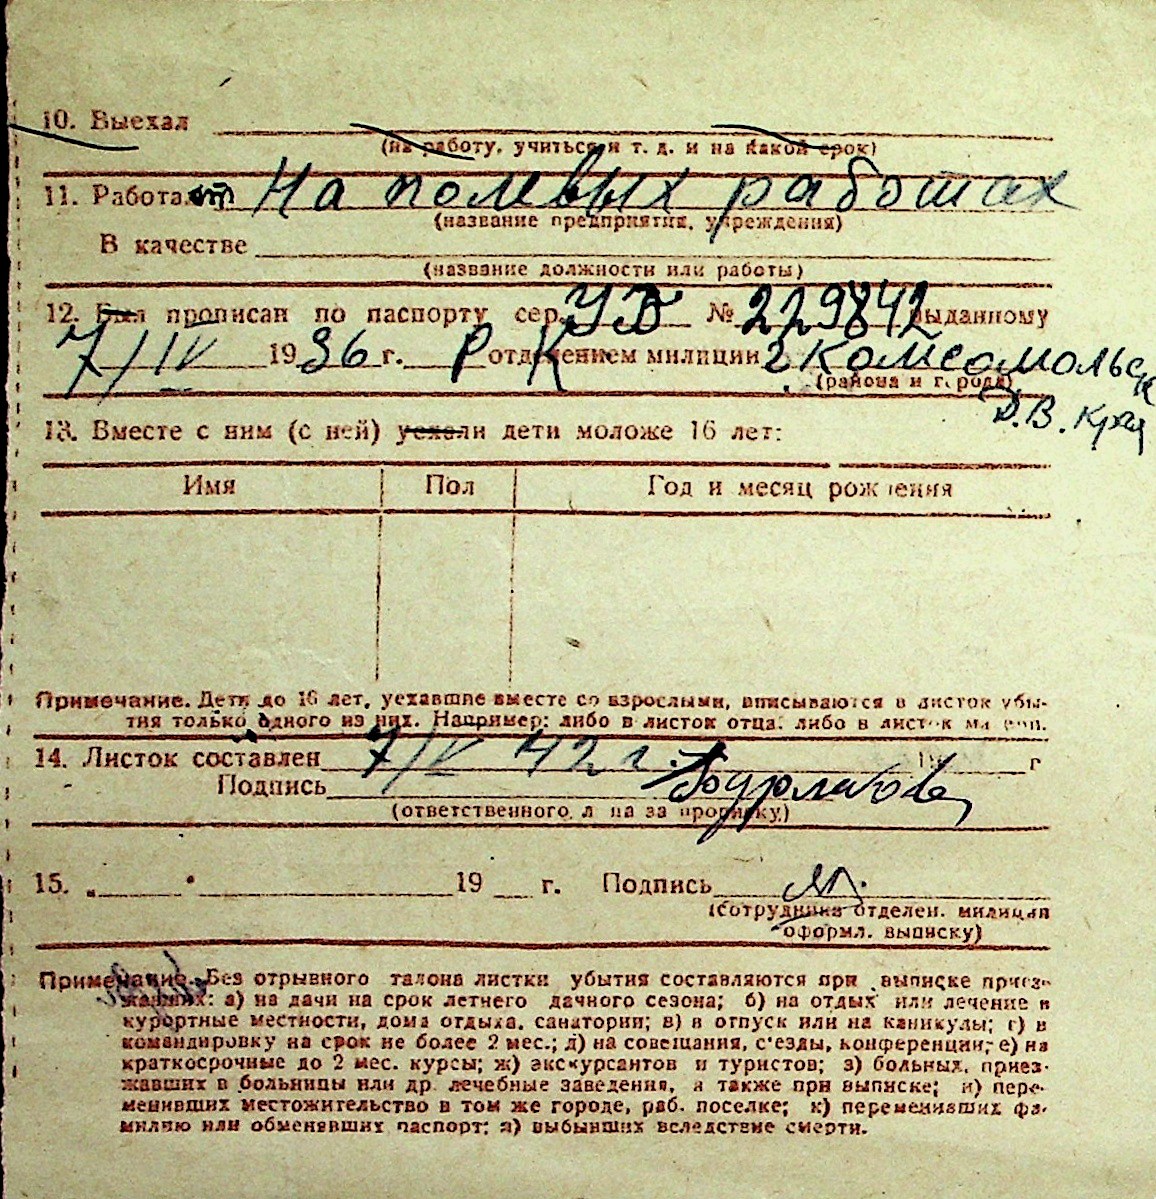 10. Выехал
(на работу, учиться и т. д. и на какой срок)
11. Работает На полевых работах
(название предприятия, учреждения)
В качестве
(название должности или работы)
12. Был прописан по паспорту сер. УБ № 229842 выданному
7/IV 1936 г. РК отделением милиции г Комсомольск
(района и города)
Д.В. Край
13. Вместе с ним (с ней) уехали дети моложе 16 лет:
Имя Пол Год и месяц рождения
Примечание. Дети до 16 лет, уехавшие вместе со взрослыми, вписываются в листок убы-
тия только одного из них. Например: либо в листок отца, либо в листок матери.
14. Листок составлен 7/V 42 г. 19 г
Подпись
(ответственного лица за прописку)
15. „ “ 19 г. Подпись
(сотрудника отделен. милиции
оформл. выписку)
Примечание. Без отрывного талона листки убытия составляются при выписке приез-
жавших: а) на дачи на срок летнего дачного сезона; б) на отдых или лечение в
курортные местности, дома отдыха, санатории; в) в отпуск или на каникулы; г) в
командировку на срок не более 2 мес.; д) на совещания, с'езды, конференции; е) на
краткосрочные до 2 мес. курсы; ж) экскурсантов и туристов; з) больных, приез-
жавших в больницы или др. лечебные заведения, а также при выписке; и) пере-
менивших местожительство в том же городе, раб. поселке; к) переменивших фа-
милию или обменявших паспорт; л) выбывших вследствие смерти.